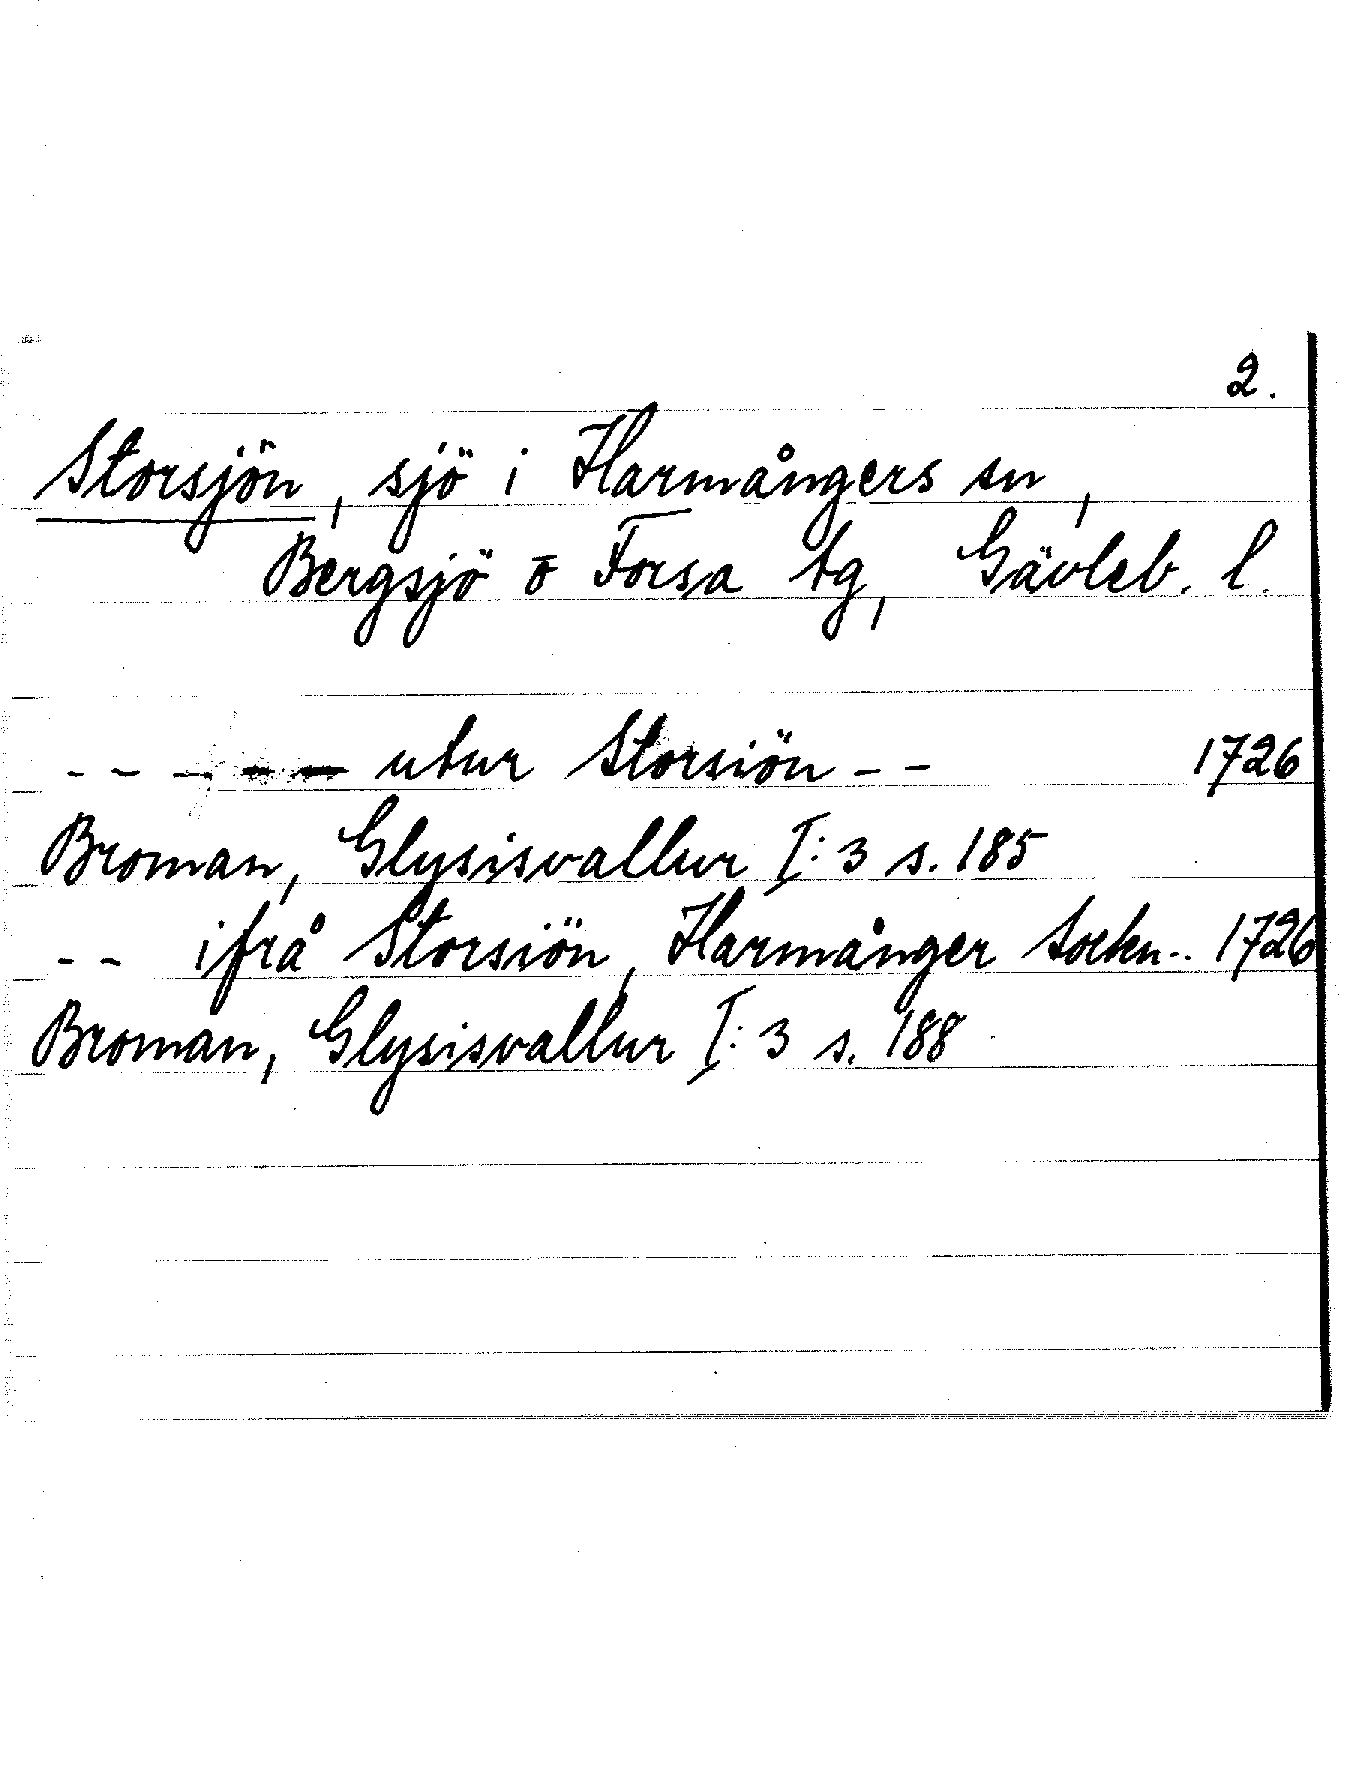 2.
Storsjön, sjö i Harmångers sn,
Bergsjö o Forsa tg, Gävleb. l.
- - - - - utur Storsiön - - 1726
Broman, Glysisvallur I:3 s. 185
- - ifrå Storsiön, Harmånger Sockn - - 1726
Broman, Glysisvallur I:3 s. 188